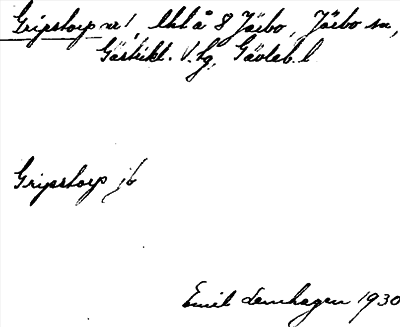 Gripstorp nr 1, lht å 8 Järbo, Järbo sn,
Gästrikl. V. tg, Gävleb. l.
Gripstorp jb
Emil Lennhagen 1930